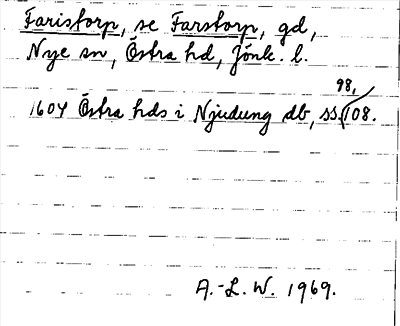 Faristorp, se Farstorp, gd,
Nye sn, Östra hd, Jönk. l.
98,
1604 Östra hds i Njudung db, ss. 108.
A.-L. W. 1969.